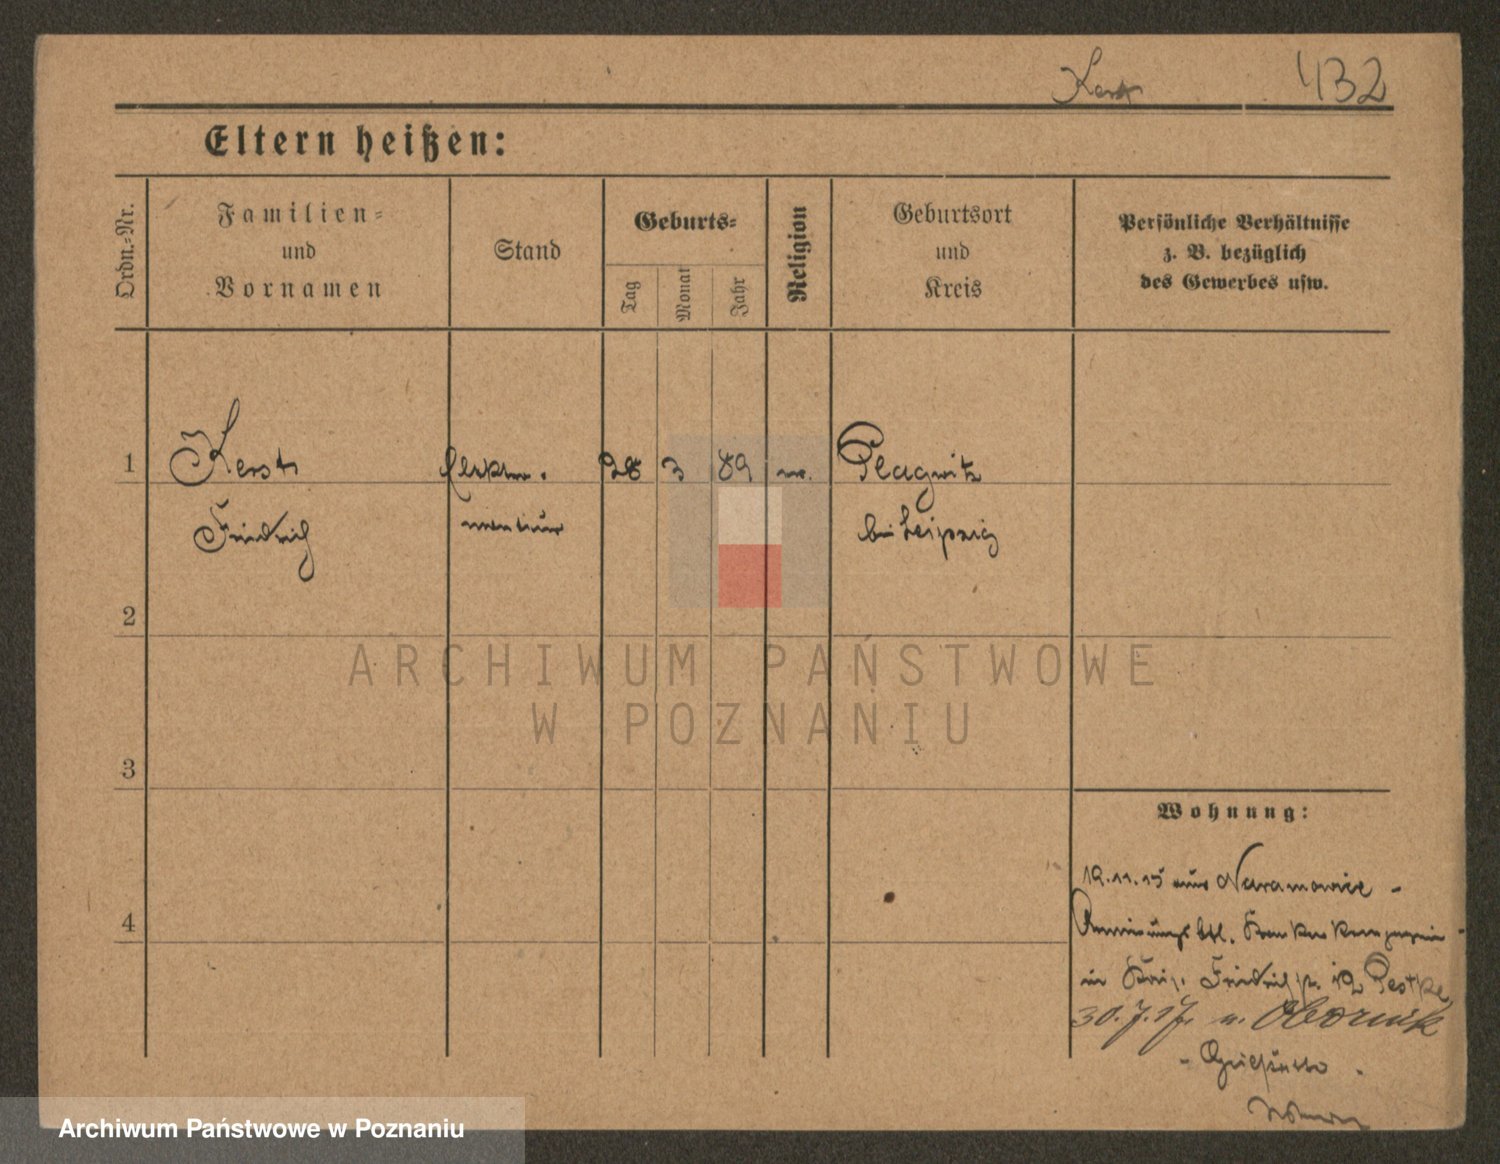 Kerst 432
Eltern heißen:
Ordn.=Nr.
Familien=
und
Vornamen
Stand
Geburts=
Tag
Monat
Jahr
Religion
Geburtsort
und
Kreis
Persönliche Verhältnisse
z. B. bezüglich
des Gewerbes usw.
1 Kerst 28 3 89 Plagwitz
Friedrich bei Leipzig
2
ARCHIWUM PAŃSTWOWE
W POZNANIU
3
Wohnung:
19.11.15 aus Naramowice -
4
in Friedrichstr. 12
30.7.17. n. Obornik
Archiwum Państwowe w Poznaniu